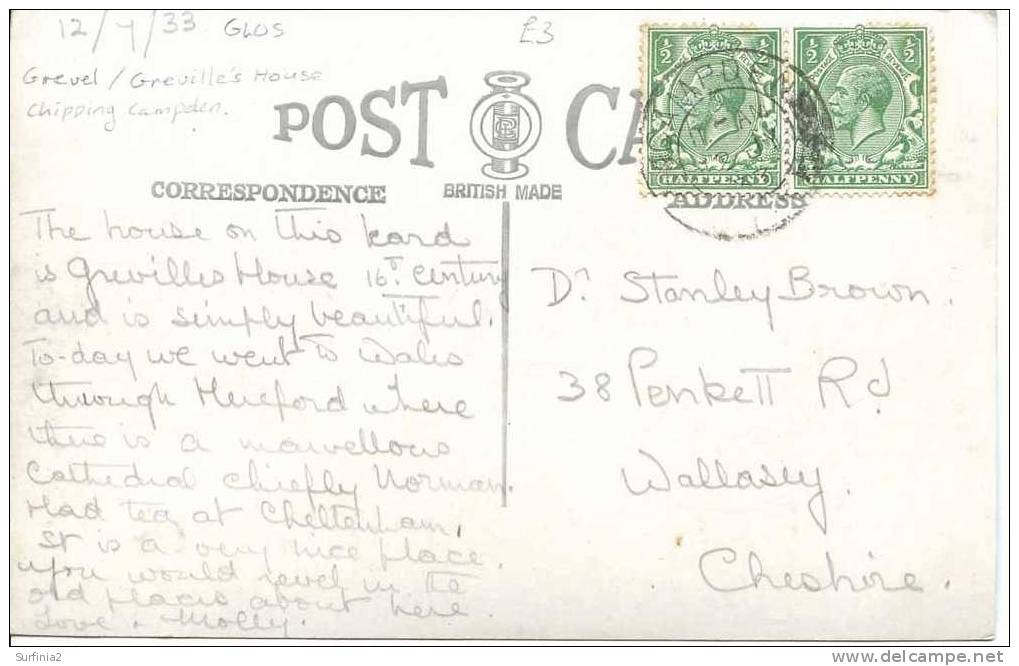 12/4/33 GLOS
£3
Grevel / Greville's House
Chipping Campden.
POST CA
CORRESPONDENCE
BRITISH MADE
ADDRESS
POSTAGE REVENUE
½ ½
HALFPENNY
POSTAGE REVENUE
½ ½
HALFPENNY
The house on this kard
is Grevilles House 16th Century
and is simply beautiful.
To-day we went to Wales
through Hereford where
there is a marvellous
Cathedral chiefly Norman.
Had tea at Cheltenham,
It is a very nice place.
you would revel in the
old places about here.
Love. Molly.
Dr Stanley Brown.
38 Penkett Rd
Wallasey.
Cheshire.
Surfinia2